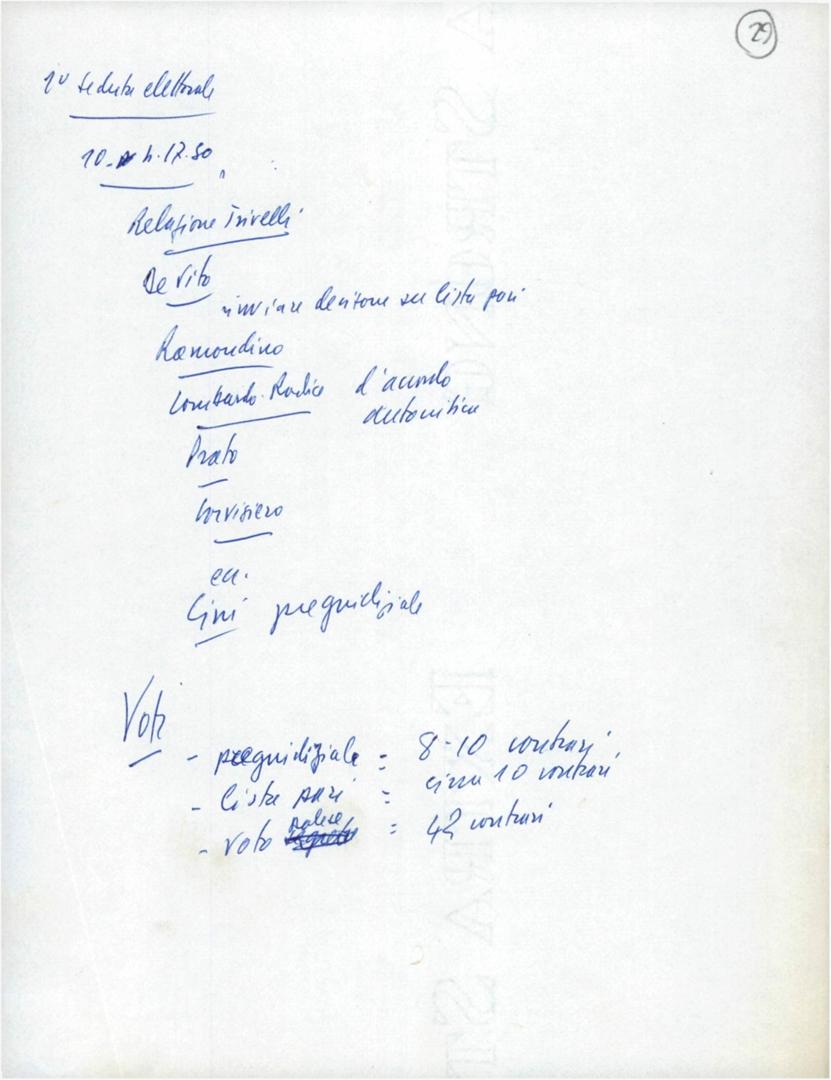 29
1ª seduta elettorale
10 h. 17.30
Relazione Trivelli
De Vito
rinviare decisione su lista pari
Ramondino
Lombardo-Radice d'accordo
autocritica
Prato
Corvisiero
ecc.
Cini pregiudiziale
Voti
- pregiudiziale = 8-10 contrari
- lista pari = circa 10 contrari
- voto palese = 42 contrari